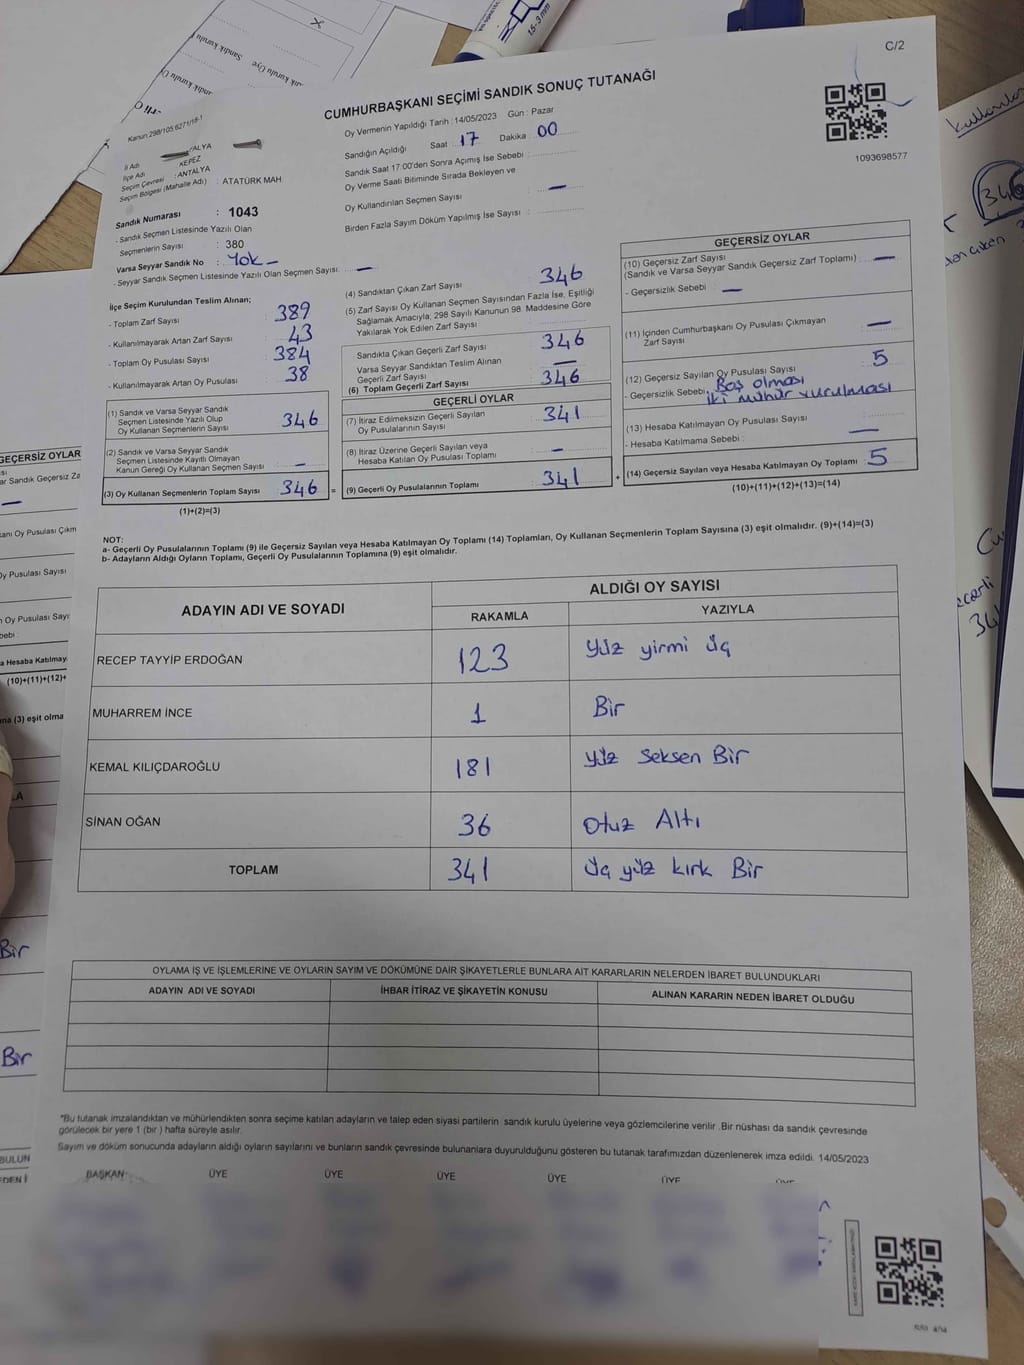 C/2
CUMHURBAŞKANI SEÇİMİ SANDIK SONUÇ TUTANAĞI
Kanun 298/105,6271/18-1
İl Adı ALYA
İlçe Adı KEPEZ
Seçim Çevresi : ANTALYA
Seçim Bölgesi (Mahalle Adı) : ATATÜRK MAH
Oy Vermenin Yapıldığı Tarih : 14/05/2023 Gün : Pazar
Sandığın Açıldığı Saat 17 Dakika 00
Sandık Saat 17:00'den Sonra Açımış İse Sebebi :
Oy Verme Saati Bitiminde Sırada Bekleyen ve
Oy Kullandırılan Seçmen Sayısı : —
Birden Fazla Sayım Döküm Yapılmış İse Sayısı :
1093698577
Sandık Numarası : 1043
- Sandık Seçmen Listesinde Yazılı Olan
Seçmenlerin Sayısı : 380
Varsa Seyyar Sandık No : Yok —
- Seyyar Sandık Seçmen Listesinde Yazılı Olan Seçmen Sayısı: —
İlçe Seçim Kurulundan Teslim Alınan;
- Toplam Zarf Sayısı : 389
- Kullanılmayarak Artan Zarf Sayısı : 43
- Toplam Oy Pusulası Sayısı : 384
- Kullanılmayarak Artan Oy Pusulası : 38
(1) Sandık ve Varsa Seyyar Sandık
Seçmen Listesinde Yazılı Olup
Oy Kullanan Seçmenlerin Sayısı : 346
(2) Sandık ve Varsa Seyyar Sandık
Seçmen Listesinde Kayıtlı Olmayan
Kanun Gereği Oy Kullanan Seçmen Sayısı : —
(3) Oy Kullanan Seçmenlerin Toplam Sayısı : 346 =
(1)+(2)=(3)
(4) Sandıktan Çıkan Zarf Sayısı : 346
(5) Zarf Sayısı Oy Kullanan Seçmen Sayısından Fazla İse, Eşitliği
Sağlamak Amacıyla; 298 Sayılı Kanunun 98. Maddesine Göre
Yakılarak Yok Edilen Zarf Sayısı :
Sandıkta Çıkan Geçerli Zarf Sayısı : 346
Varsa Seyyar Sandıktan Teslim Alınan
Geçerli Zarf Sayısı : —
(6) Toplam Geçerli Zarf Sayısı : 346
GEÇERLİ OYLAR
(7) İtiraz Edilmeksizin Geçerli Sayılan
Oy Pusulalarının Sayısı : 341
(8) İtiraz Üzerine Geçerli Sayılan veya
Hesaba Katılan Oy Pusulası Toplamı : —
(9) Geçerli Oy Pusulalarının Toplamı : 341 +
GEÇERSİZ OYLAR
(10) Geçersiz Zarf Sayısı
(Sandık ve Varsa Seyyar Sandık Geçersiz Zarf Toplamı) : —
- Geçersizlik Sebebi : —
(11) İçinden Cumhurbaşkanı Oy Pusulası Çıkmayan
Zarf Sayısı : —
(12) Geçersiz Sayılan Oy Pusulası Sayısı : 5
- Geçersizlik Sebebi : Boş olması
iki mühür vurulması
(13) Hesaba Katılmayan Oy Pusulası Sayısı :
- Hesaba Katılmama Sebebi : —
(14) Geçersiz Sayılan veya Hesaba Katılmayan Oy Toplamı : 5
(10)+(11)+(12)+(13)=(14)
NOT:
a- Geçerli Oy Pusulalarının Toplamı (9) ile Geçersiz Sayılan veya Hesaba Katılmayan Oy Toplamı (14) Toplamları, Oy Kullanan Seçmenlerin Toplam Sayısına (3) eşit olmalıdır. (9)+(14)=(3)
b- Adayların Aldığı Oyların Toplamı, Geçerli Oy Pusulalarının Toplamına (9) eşit olmalıdır.
ADAYIN ADI VE SOYADI
ALDIĞI OY SAYISI
RAKAMLA YAZIYLA
RECEP TAYYİP ERDOĞAN 123 Yüz yirmi üç
MUHARREM İNCE 1 Bir
KEMAL KILIÇDAROĞLU 181 Yüz Seksen Bir
SİNAN OĞAN 36 Otuz Altı
TOPLAM 341 Üç yüz kırk Bir
OYLAMA İŞ VE İŞLEMLERİNE VE OYLARIN SAYIM VE DÖKÜMÜNE DAİR ŞİKAYETLERLE BUNLARA AİT KARARLARIN NELERDEN İBARET BULUNDUKLARI
ADAYIN ADI VE SOYADI İHBAR İTİRAZ VE ŞİKAYETİN KONUSU ALINAN KARARIN NEDEN İBARET OLDUĞU
*Bu tutanak imzalandıktan ve mühürlendikten sonra seçime katılan adayların ve talep eden siyasi partilerin sandık kurulu üyelerine veya gözlemcilerine verilir .Bir nüshası da sandık çevresinde
görülecek bir yere 1 (bir ) hafta süreyle asılır.
Sayım ve döküm sonucunda adayların aldığı oyların sayılarını ve bunların sandık çevresinde bulunanlara duyurulduğunu gösteren bu tutanak tarafımızdan düzenlenerek imza edildi. 14/05/2023
BAŞKAN ÜYE ÜYE ÜYE ÜYE ÜYE ÜYE